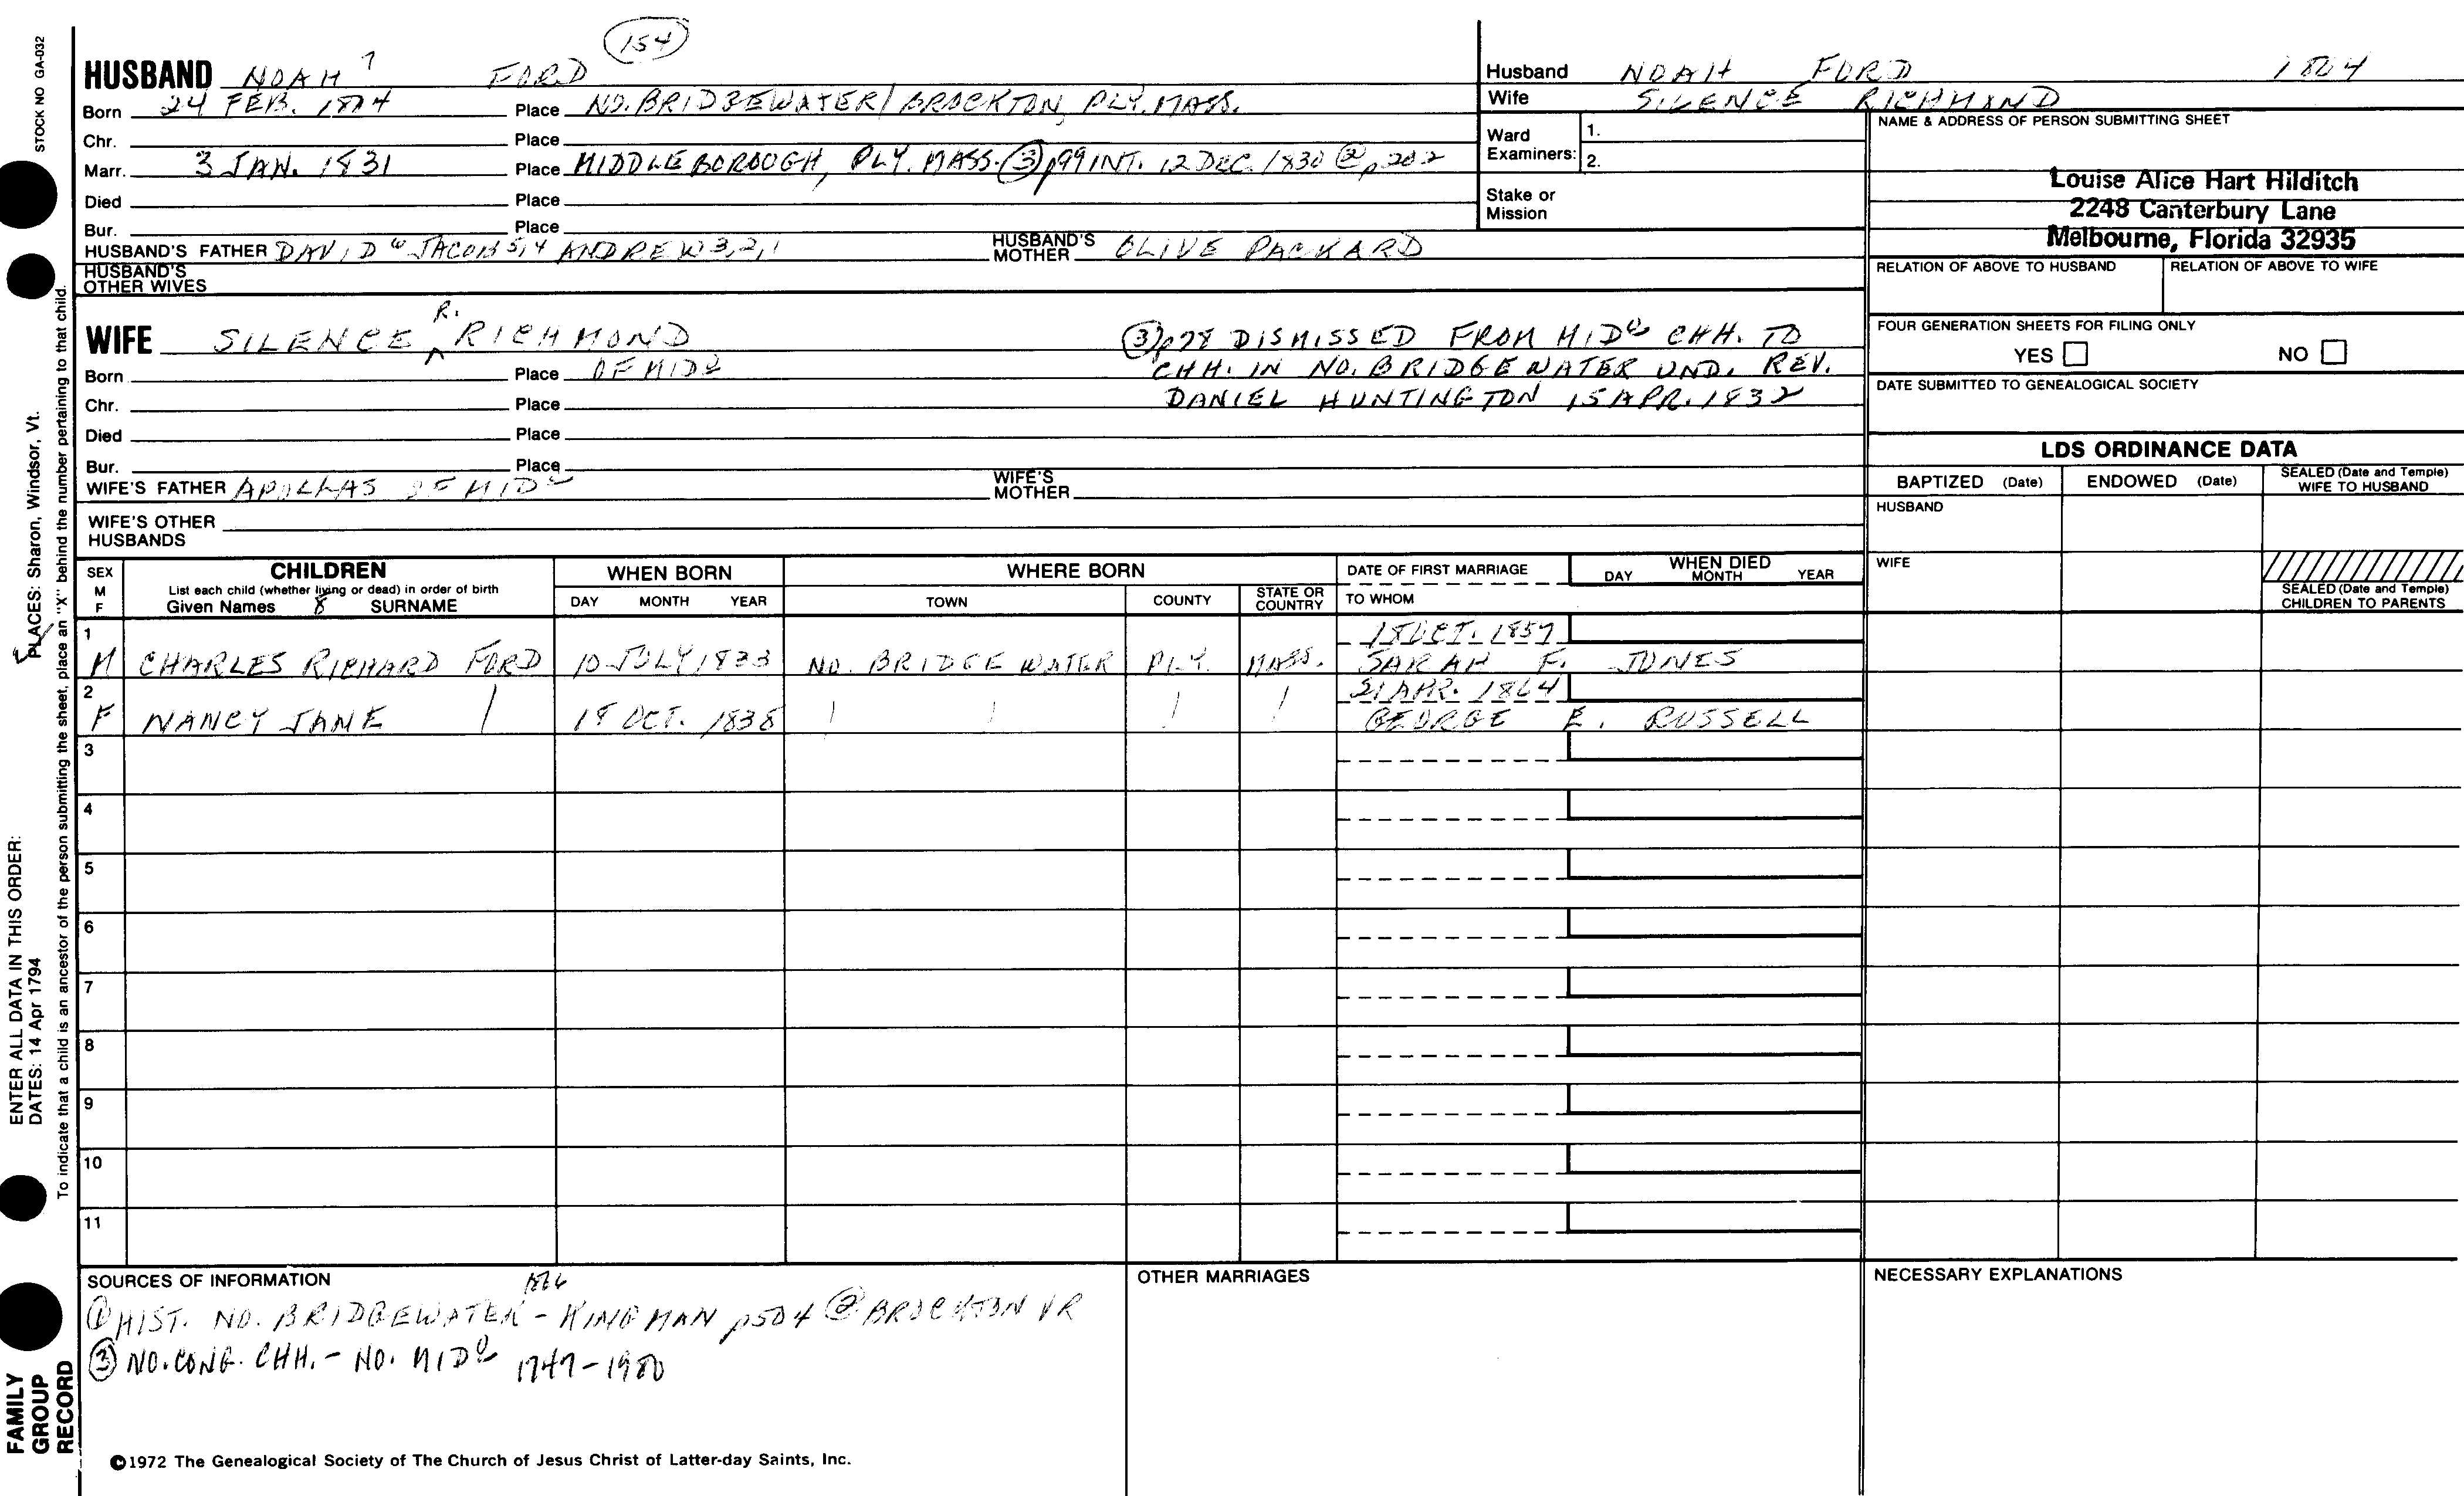 154
HUSBAND NOAH 7 FORD
Born 24 FEB. 1804 Place NO. BRIDGEWATER/BROCKTON, PLY. MASS.
Chr. Place
Marr. 3 JAN. 1831 Place MIDDLEBOROUGH, PLY. MASS. ③ p99 INT. 12 DEC. 1830 ② p202
Died Place
Bur. Place
HUSBAND'S FATHER DAVID 6 JACOB 5,4 ANDREW 3,2,1 HUSBAND'S MOTHER OLIVE PACKARD
HUSBAND'S OTHER WIVES
Husband NOAH FORD 1804
Wife SILENCE RICHMOND
Ward Examiners: 1.
2.
Stake or Mission
NAME & ADDRESS OF PERSON SUBMITTING SHEET
Louise Alice Hart Hilditch
2248 Canterbury Lane
Melbourne, Florida 32935
RELATION OF ABOVE TO HUSBAND RELATION OF ABOVE TO WIFE
FOUR GENERATION SHEETS FOR FILING ONLY
YES NO
DATE SUBMITTED TO GENEALOGICAL SOCIETY
WIFE SILENCE R. RICHMOND
Born Place OF MIDo
Chr. Place
Died Place
Bur. Place
③ p78 DISMISSED FROM MIDo CHH. TO
CHH. IN NO. BRIDGEWATER UND. REV.
DANIEL HUNTINGTON 15 APR. 1832
WIFE'S FATHER APOLLAS OF MIDo WIFE'S MOTHER
WIFE'S OTHER HUSBANDS
LDS ORDINANCE DATA
BAPTIZED (Date) ENDOWED (Date) SEALED (Date and Temple) WIFE TO HUSBAND
HUSBAND
WIFE
SEALED (Date and Temple) CHILDREN TO PARENTS
SEX M F
CHILDREN
List each child (whether living or dead) in order of birth
Given Names 8 SURNAME
WHEN BORN
DAY MONTH YEAR
WHERE BORN
TOWN COUNTY STATE OR COUNTRY
DATE OF FIRST MARRIAGE
TO WHOM
WHEN DIED
DAY MONTH YEAR
1 M CHARLES RICHARD FORD 10 JULY 1833 NO. BRIDGEWATER PLY. MASS. OCT. 1857
SARAH F. JONES
2 F NANCY JANE 18 OCT. 1838 21 APR. 1864
GEORGE E. RUSSELL
3
4
5
6
7
8
9
10
11
SOURCES OF INFORMATION
1866
① HIST. NO. BRIDGEWATER - KINGMAN p504 ② BROCKTON VR
③ NO. CONG. CHH. - NO. MIDo 1747-1980
OTHER MARRIAGES
NECESSARY EXPLANATIONS
©1972 The Genealogical Society of The Church of Jesus Christ of Latter-day Saints, Inc.
STOCK NO GA-032
PLACES: Sharon, Windsor, Vt.
ENTER ALL DATA IN THIS ORDER:
DATES: 14 Apr 1794
To indicate that a child is an ancestor of the person submitting the sheet, place an "X" behind the number pertaining to that child.
FAMILY
GROUP
RECORD